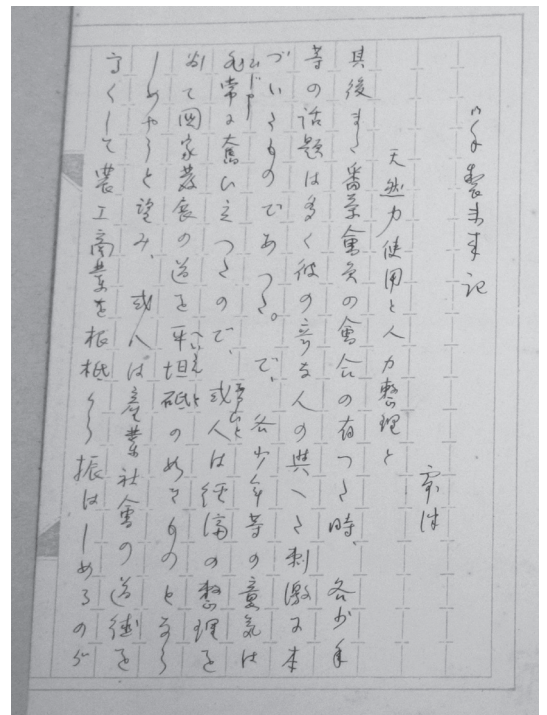 御手製未来記
露伴
天然力使用と人力整理と
其後また番茶會員の會合の有つた時、各少年
等の話題は多く彼の奇な人の與へた刺激に本
づいたものであつた。で、各少年等の意氣は
非常に奮ひ立つたので、或人は經濟の整理を
以て國家發展の道を平坦砥の如きものとなら
しめやうと望み、或人は産業社會の道徳を
高くして農工商業を根柢から振はしめるのが